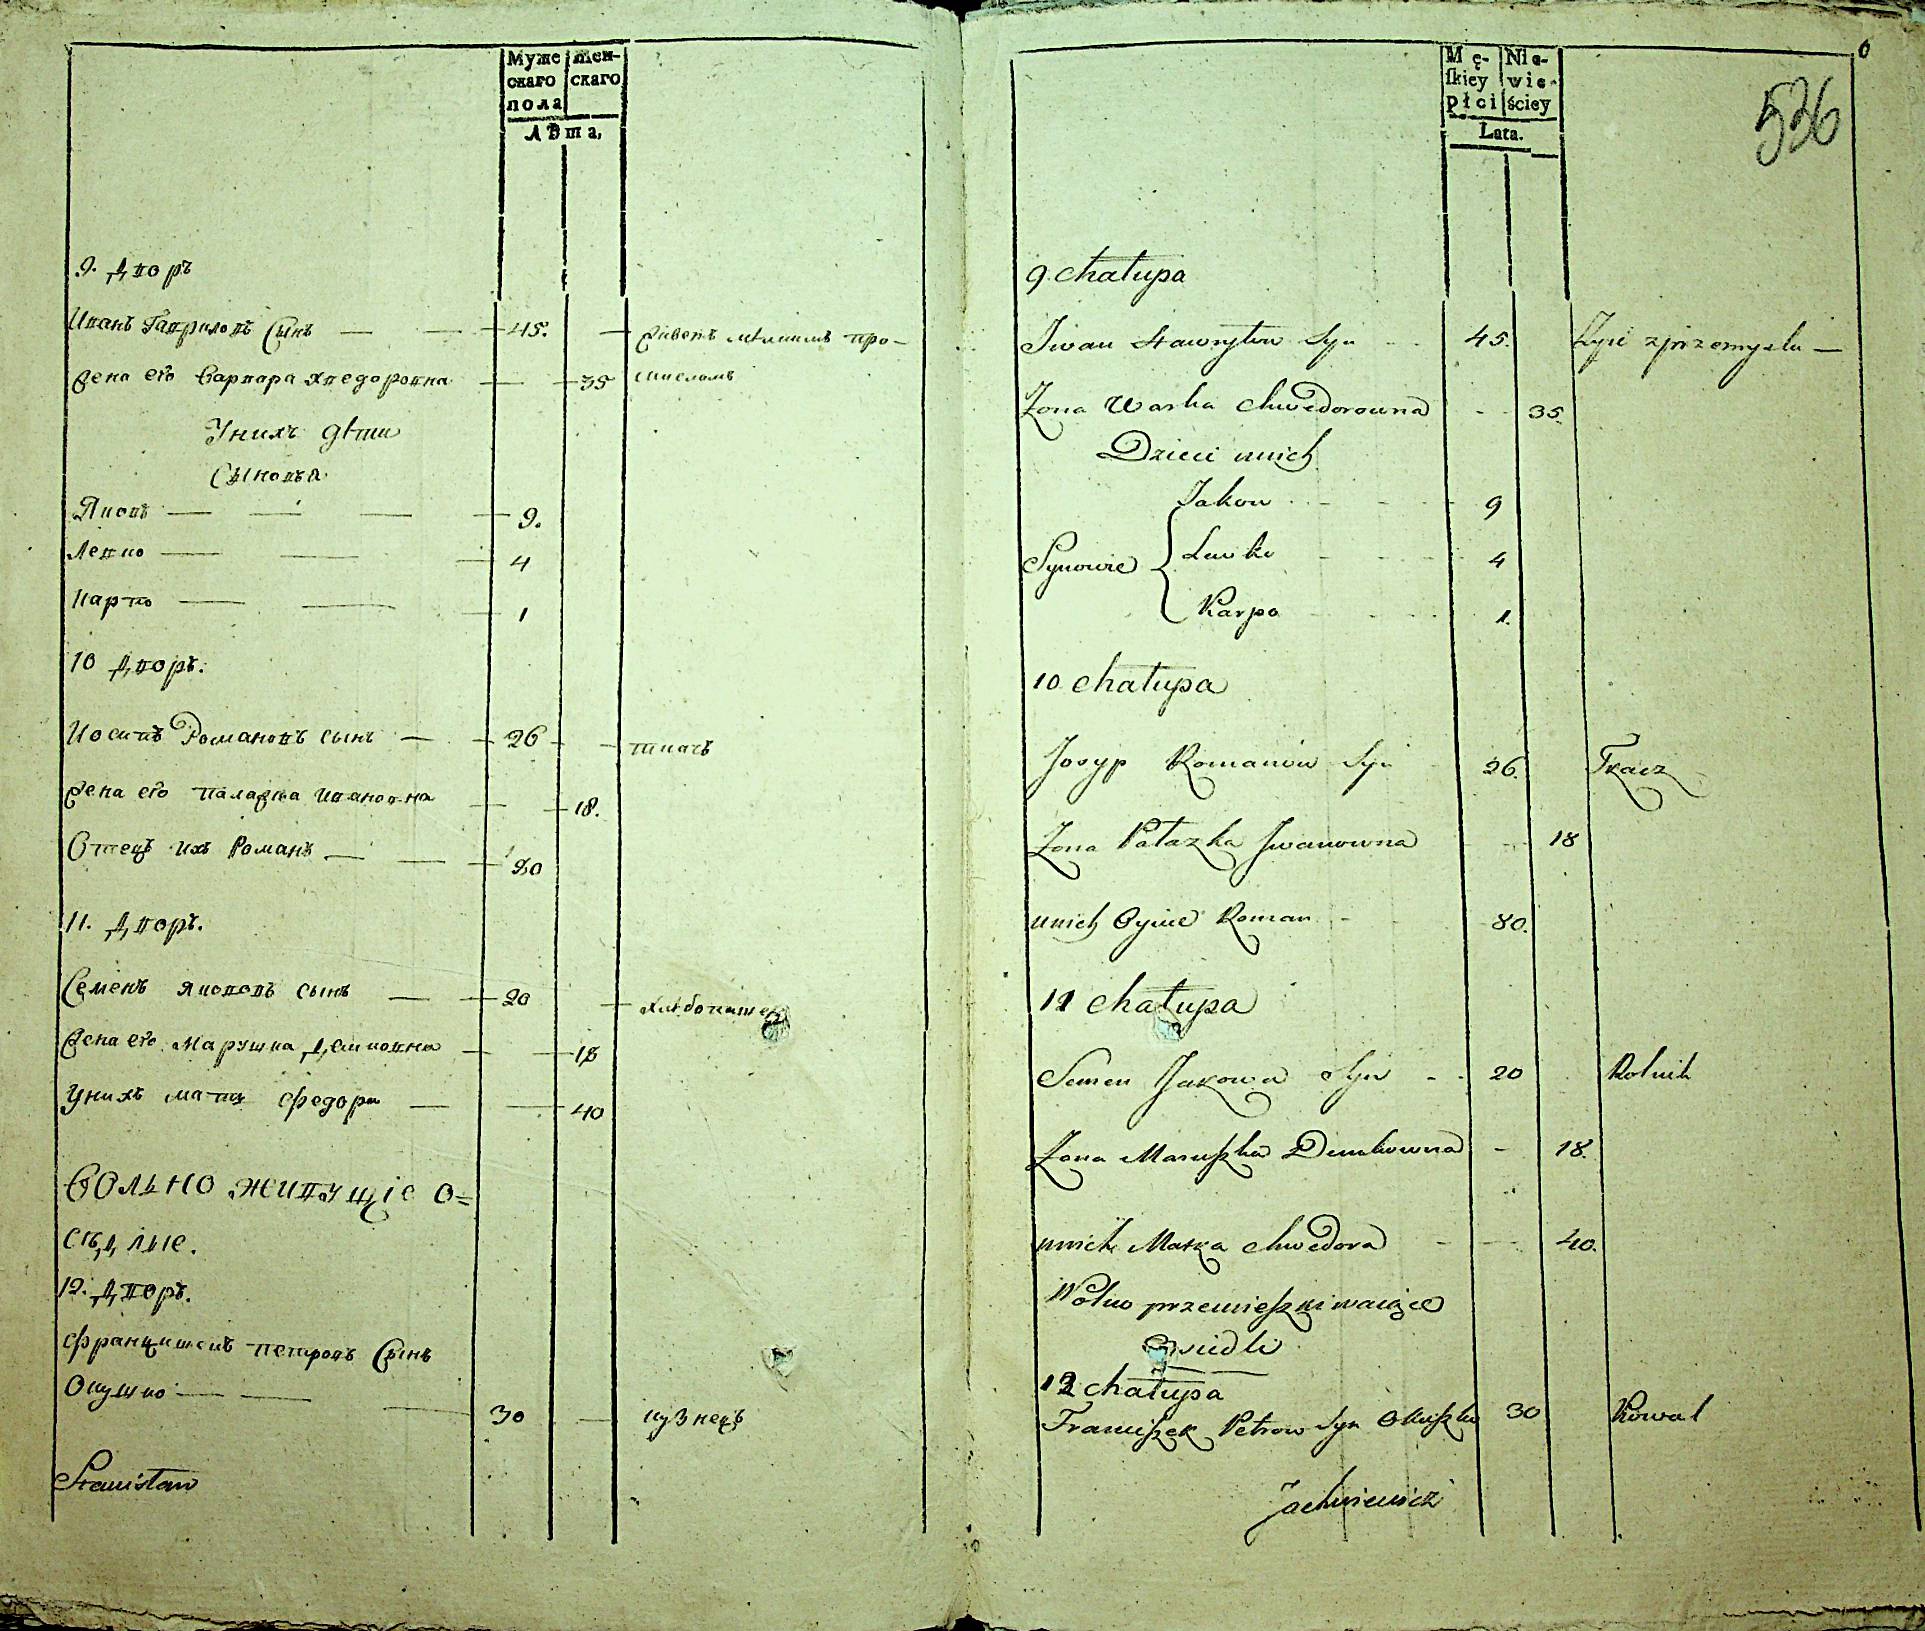 Муже
скаго
пола
жен-
скаго
Лѣта,
9. Дворъ
Иванъ Гавриловъ Сынъ — — 45. — живетъ мѣлкимъ про-
жена его Варвара Хведоровна — 35 мысломъ
У нихъ дѣти
Сыновья
Яковъ — — — 9.
Левко — — 4
Карпо — — 1
10 Дворъ.
Иосипъ Романовъ сынъ — 26 — ткачъ
жена его Палажка Ивановна — 18.
Отецъ ихъ Романъ — — 80
11. Дворъ.
Семенъ Якововъ сынъ — 20 — хлѣбопашец
жена его Марушка Демковна — 18
У нихъ матъ Федора — — 40
Вольно живущіе о=
сѣдлые.
12. Дворъ.
Францишекъ Петровъ Сынъ
Окушко — — — 30 — кузнецъ
Stanisław
6
536
Mę-
ſkiey
płci
Nie-
wie-
ściey
Lata.
9 Chałupa
Iwan Hawryłow Syn 45. Żyie z przemysłu —
Żona Warka Chwedorowna 35.
Dzieci u nich
Jakow 9
Synowie { Lewko 4
Karpo 1.
10 Chałupa
Josyp Romanów Syn 26. Tkacz
Żona Pałazka Iwanowna 18
u nich Oyciec Roman 80.
11 Chałupa
Semen Jakowa Syn 20 Rolnik
Żona Maruszka Demkowna 18.
u nich Matka Chwedora 40.
Wolno przemieszkiwaiące
Osiedli
12 Chałupa
Franciszek Petrow Syn Okuszko 30 Kowal
Jachniewicz